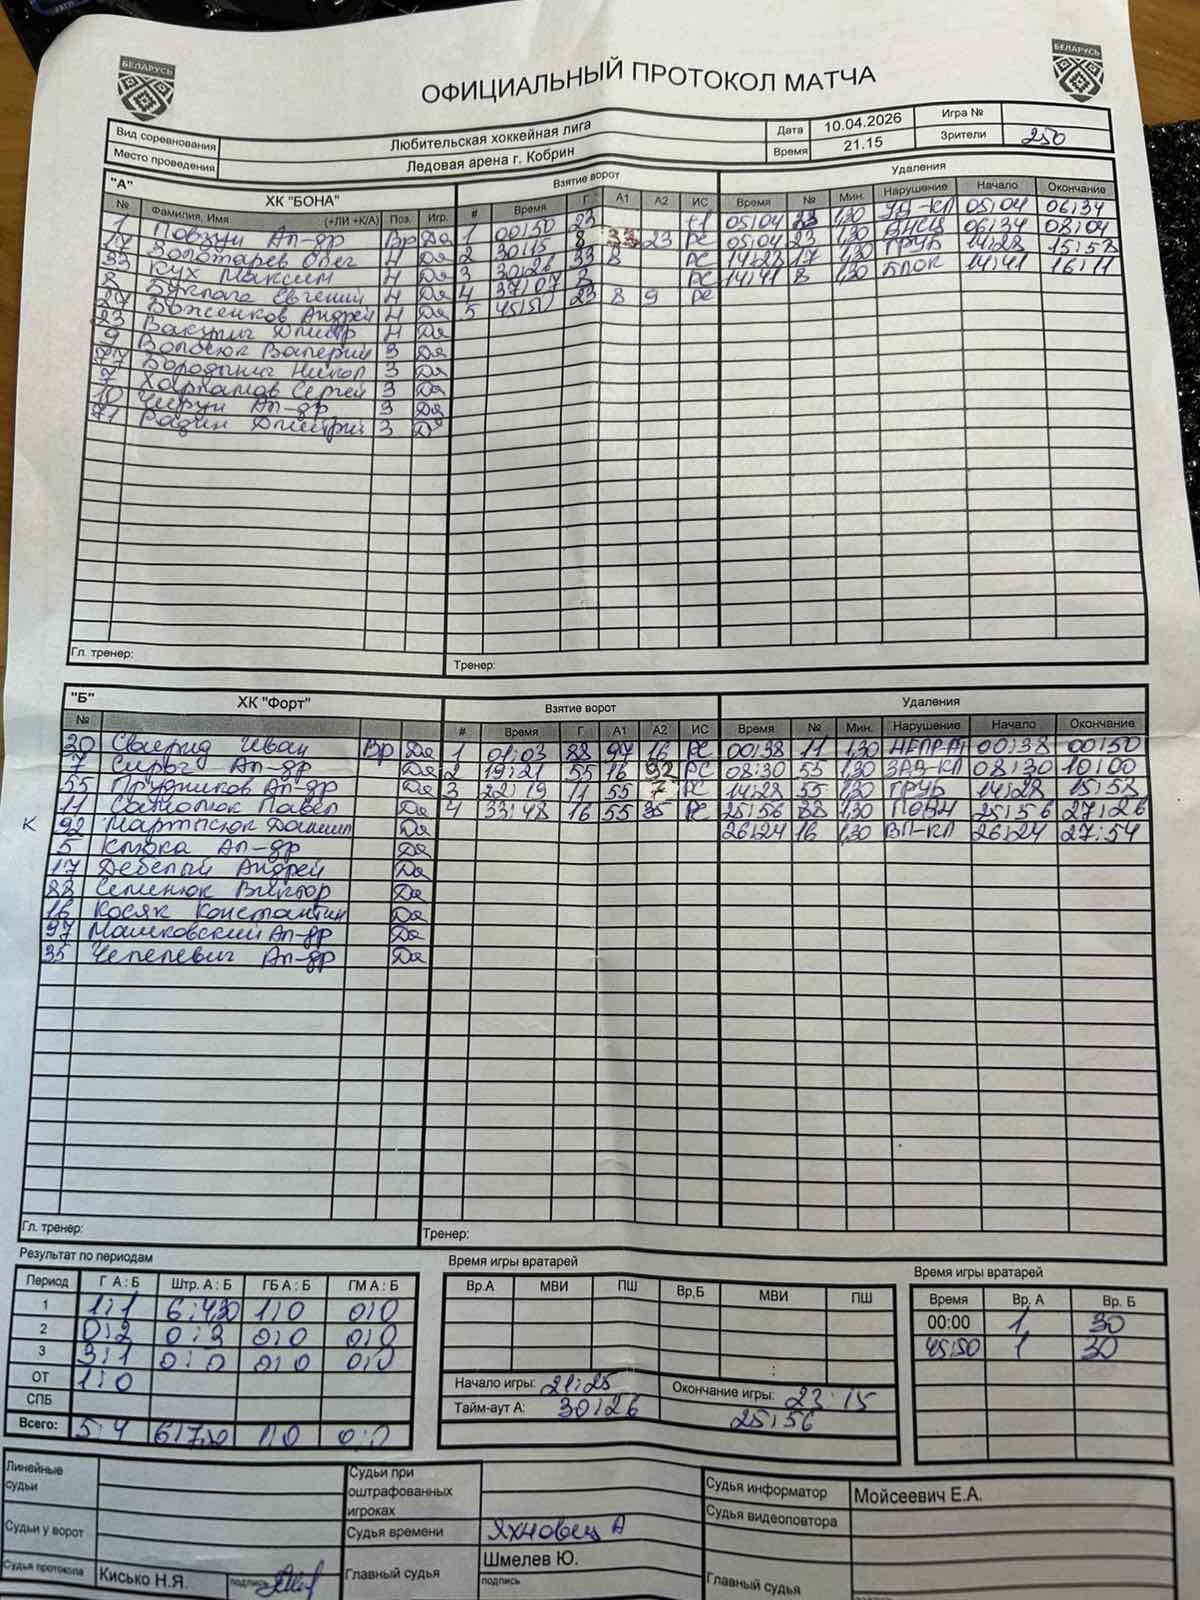 БЕЛАРУСЬ
БЕЛАРУСЬ
ОФИЦИАЛЬНЫЙ ПРОТОКОЛ МАТЧА
Вид соревнования Любительская хоккейная лига Дата 10.04.2026 Игра №
Место проведения Ледовая арена г. Кобрин Время 21.15 Зрители 250
"А" ХК "БОНА" Взятие ворот Удаления
№ Фамилия, Имя (+ЛИ +К/А) Поз. Игр. # Время Г А1 А2 ИС Время № Мин. Нарушение Начало Окончание
1 Ап-др Вр Да 1 00:50 23 05:04 33 1,30 УД-КЛ 05:04 06:34
17 Золотарев Олег Н Да 2 30:15 8 33 23 РС 05:04 23 1,30 06:34 08:04
33 Кух Максим Н Да 3 30:26 33 8 РС 14:28 17 1,30 ГРУБ 14:28 15:58
8 Евгений Н Да 4 37:07 РС 14:41 8 1,30 БЛОК 14:41 16:11
Андрей Н Да 5 45:50 23 8 9 РС
23 Вакулич Дмитр Н Да
9 Валерий З Да
77 Бородинич Никол З Да
7 Харламов Сергей З Да
10 Ап-др З Да
71 Радин Дмитрий З Да
Гл. тренер: Тренер:
"Б" ХК "Форт" Взятие ворот Удаления
№ # Время Г А1 А2 ИС Время № Мин. Нарушение Начало Окончание
30 Свирид Иван Вр Да 1 01:03 88 97 16 РС 00:38 11 1,30 НЕПРАТ 00:38 00:50
7 Ап-др Да 2 19:21 55 16 92 РС 08:30 55 1,30 ЗАД-КЛ 08:30 10:00
55 Прудников Ап-др Да 3 22:19 11 55 7 РС 14:28 55 1,30 ГРУБ 14:28 15:58
11 Самолюк Павел Да 4 33:48 16 55 35 РС 25:56 88 1,30 25:56 27:26
К 92 Мартысюк Даниил Да 26:24 16 1,30 ВП-КЛ 26:24 27:54
5 Клюка Ап-др Да
17 Дебелый Андрей Да
88 Семенюк Виктор Да
16 Косяк Константин Да
97 Машковский Ап-др Да
35 Чепелевич Ап-др Да
Гл. тренер: Тренер:
Результат по периодам Время игры вратарей Время игры вратарей
Период Г А : Б Штр. А : Б ГБ А : Б ГМ А : Б Вр.А МВИ ПШ Вр.Б МВИ ПШ Время Вр. А Вр. Б
1 1:1 6:4,30 1:0 0:0 00:00 1 30
2 0:2 0:3 0:0 0:0 45:50 1 30
3 3:1 0:0 0:0 0:0 :
ОТ 1:0 Начало игры: 21:25 Окончание игры: 23:15
СПБ Тайм-аут А: 30:26 25:56
Всего: 5:4 6:7,30 1:0 0:0
Линейные судьи Судьи при оштрафованных игроках Судья информатор Мойсеевич Е.А.
Судьи у ворот Судья времени Яхновец А Судья видеоповтора
Судья протокола Кисько Н.Я. подпись Главный судья Шмелев Ю. подпись Главный судья